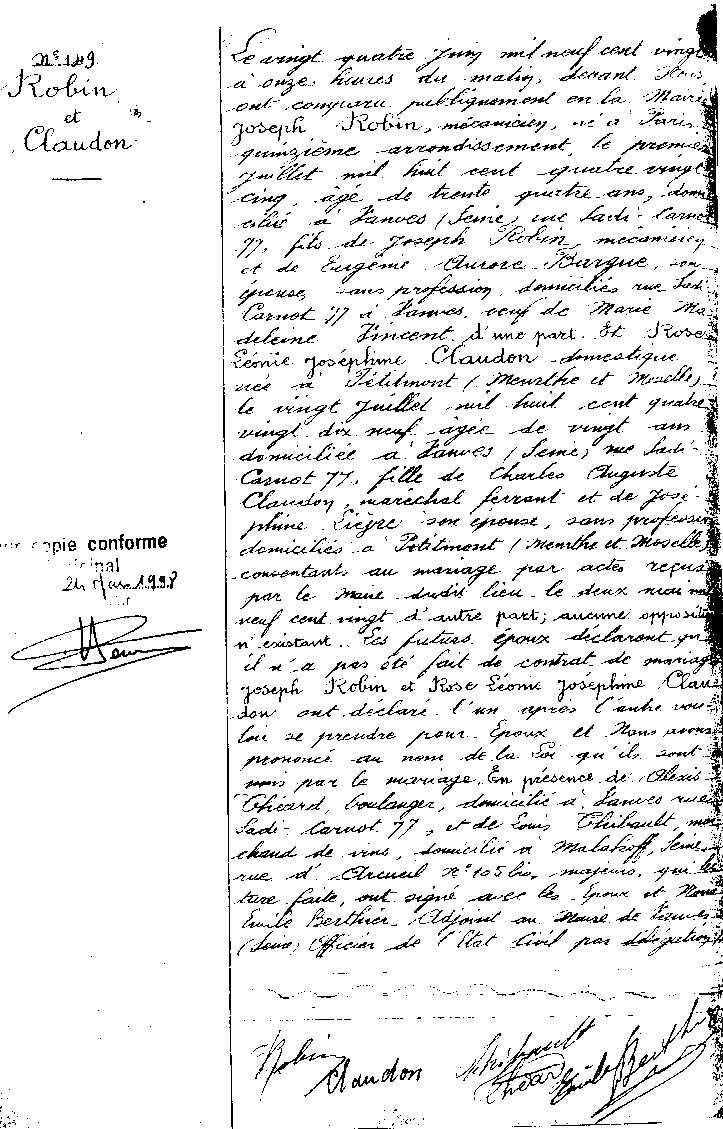 N° 149
Robin
et
Claudon
Le vingt quatre juin mil neuf cent vingt
à onze heures du matin, devant Nous
ont comparu publiquement en la Mairie
Joseph Robin, mécanicien, né à Paris
quinzième arrondissement, le premier
juillet mil huit cent quatre vingt
cinq, âgé de trente quatre ans, domi
cilié à Vanves (Seine) rue Sadi-Carnot
77, fils de Joseph Robin, mécanicien
et de Eugénie Aurore Bargue, son
épouse, sans profession, domiciliés rue Sadi
Carnot 77 à Vanves, veuf de Marie Ma
deleine Vincent, d'une part. Et Rose
Léonie Joséphine Claudon domestique
née à Pétitmont (Meurthe et Moselle)
le vingt juillet mil huit cent quatre
vingt dix neuf, âgée de vingt ans
domiciliée à Vanves (Seine) rue Sadi-
Carnot 77, fille de Charles Auguste
Claudon, maréchal ferrant et de José-
phine Liègre son épouse, sans profession
domiciliés à Petitmont (Meurthe et Moselle)
consentants au mariage par actes reçus
par le Maire dudit lieu le deux mai mil
neuf cent vingt d'autre part; aucune opposition
n'existant. Les futurs époux déclarent qu'
il n'a pas été fait de contrat de mariage
Joseph Robin et Rose Léonie Joséphine Clau
don ont déclaré l'un après l'autre vou
loir se prendre pour Epoux et Nous avons
prononcé au nom de la Loi qu'ils sont
unis par le mariage. En présence de Alexis
Cheard, boulanger, domicilié à Vanves rue
Sadi-Carnot 77, et de Louis Thibault, mar
chand de vins, domicilié à Malakoff, Seine,
rue d'Arcueil N° 105 bis, majeurs, qui lec
ture faite, ont signé avec les Epoux et Nous
Emile Berthier Adjoint au Maire de Vanves
(Seine) Officier de l'Etat Civil par délégation
copie conforme
24 1998
Robin
Claudon
Thibault
Cheard
Emile Berthier